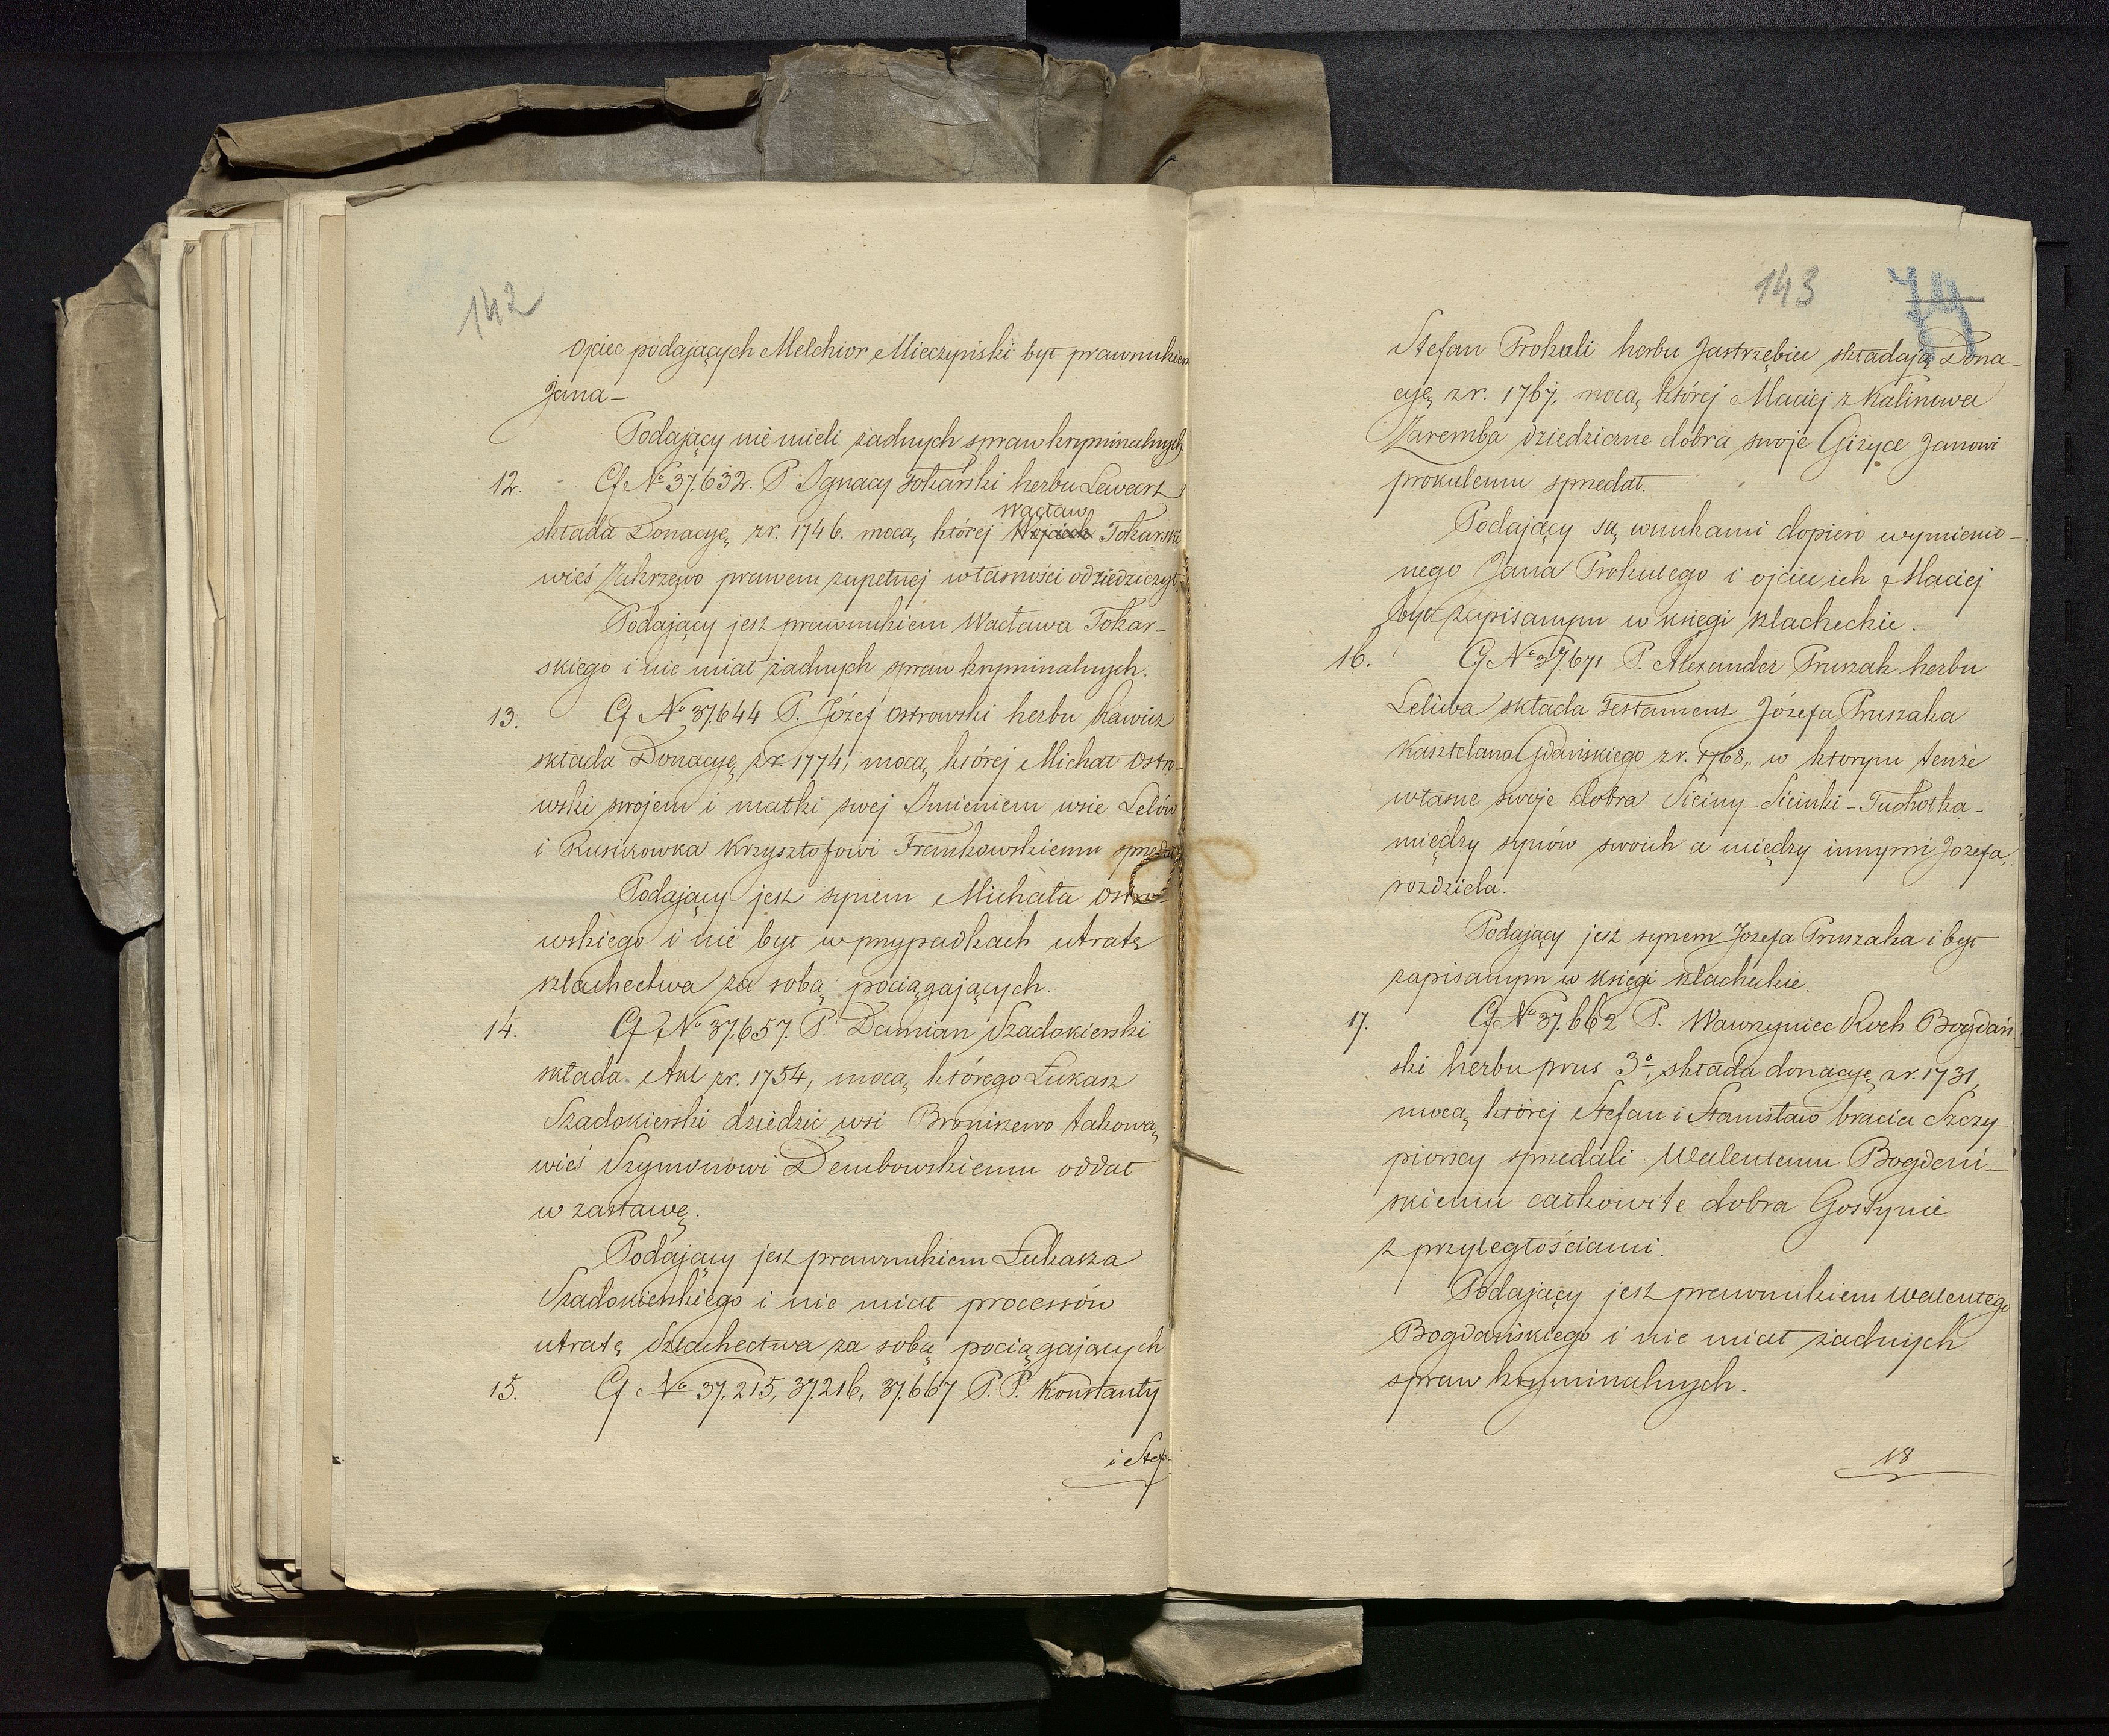 142
Ojciec podających Melchior Mieczyński był prawnukiem
Jana —
Podający nie mieli żadnych spraw kryminalnych
12. Cf № 37.632. P. Ignacy Tokarski herbu Lewart
Wacław
składa Donacyę zr. 1746. mocą której Wojciech Tokarski
wieś Zakrzewo prawem zupełnej własności odziedziczył.
Podający jest prawnukiem Wacława Tokar-
skiego i nie miał żadnych spraw kryminalnych.
13. Cf № 37.644 P. Józef Ostrowski herbu Rawicz
składa Donacyę zr. 1774, mocą której Michał Ostro-
wski swojem i matki swej Imieniem wsie Lelów
i Krzysztofowi Frankowskiemu sprzedał
Podający jest synem Michała Ostro-
wskiego i nie był w przypadkach utratę
szlachectwa za sobą pociągających.
14. Cf № 37.657. P. Damian Szadokierski
składa Akt zr. 1754, mocą którego Łukasz
Szadokierski dziedzic wsi Broniszewo takową
wieś Szymonowi Dembowskiemu oddał
w zastawę.
Podający jest prawnukiem Łukasza
Szadokierskiego i nie miał processów
utratę Szlachectwa za sobą pociągających
15. Cf № 37.215, 37.216, 37.667 P. P. Konstanty
i Stef
143 74
Stefan Prokuli herbu Jastrzębiec składają Dona-
cyę zr. 1767, mocą której Maciej z Kalinowa
Zaremba dziedziczne dobra swoje Giżyce Janowi
prokulemu sprzedał.
Podający są wnukami dopiero wymienio-
nego Jana Prokulego i ojciec ich Maciej
był zapisanym w księgi szlacheckie.
16. Cf № 37671 P. Alexander Pruszak herbu
Leliwa składa Testament Józefa Pruszaka
Kasztelana Gdańskiego zr. 1768, w którym tenże
własne swoje dobra Siciny - Sicinki - Tuchotka -
między synów swoich a między innymi Jozefa,
rozdziela.
Podający jest synem Jozefa Pruszaka i był
zapisanym w księgi szlacheckie.
17. Cf № 37.662 P. Wawrzyniec Roch Bogdań
ski herbu prus 3º, składa donacyę zr. 1731,
mocą której Stefan i Stanisław bracia Szczy-
piorscy sprzedali Walentemu Bogdań-
skiemu całkowite dobra Gostynie
z przyległościami.
Podający jest prawnukiem Walentego
Bogdańskiego i nie miał żadnych
spraw kryminalnych.
18